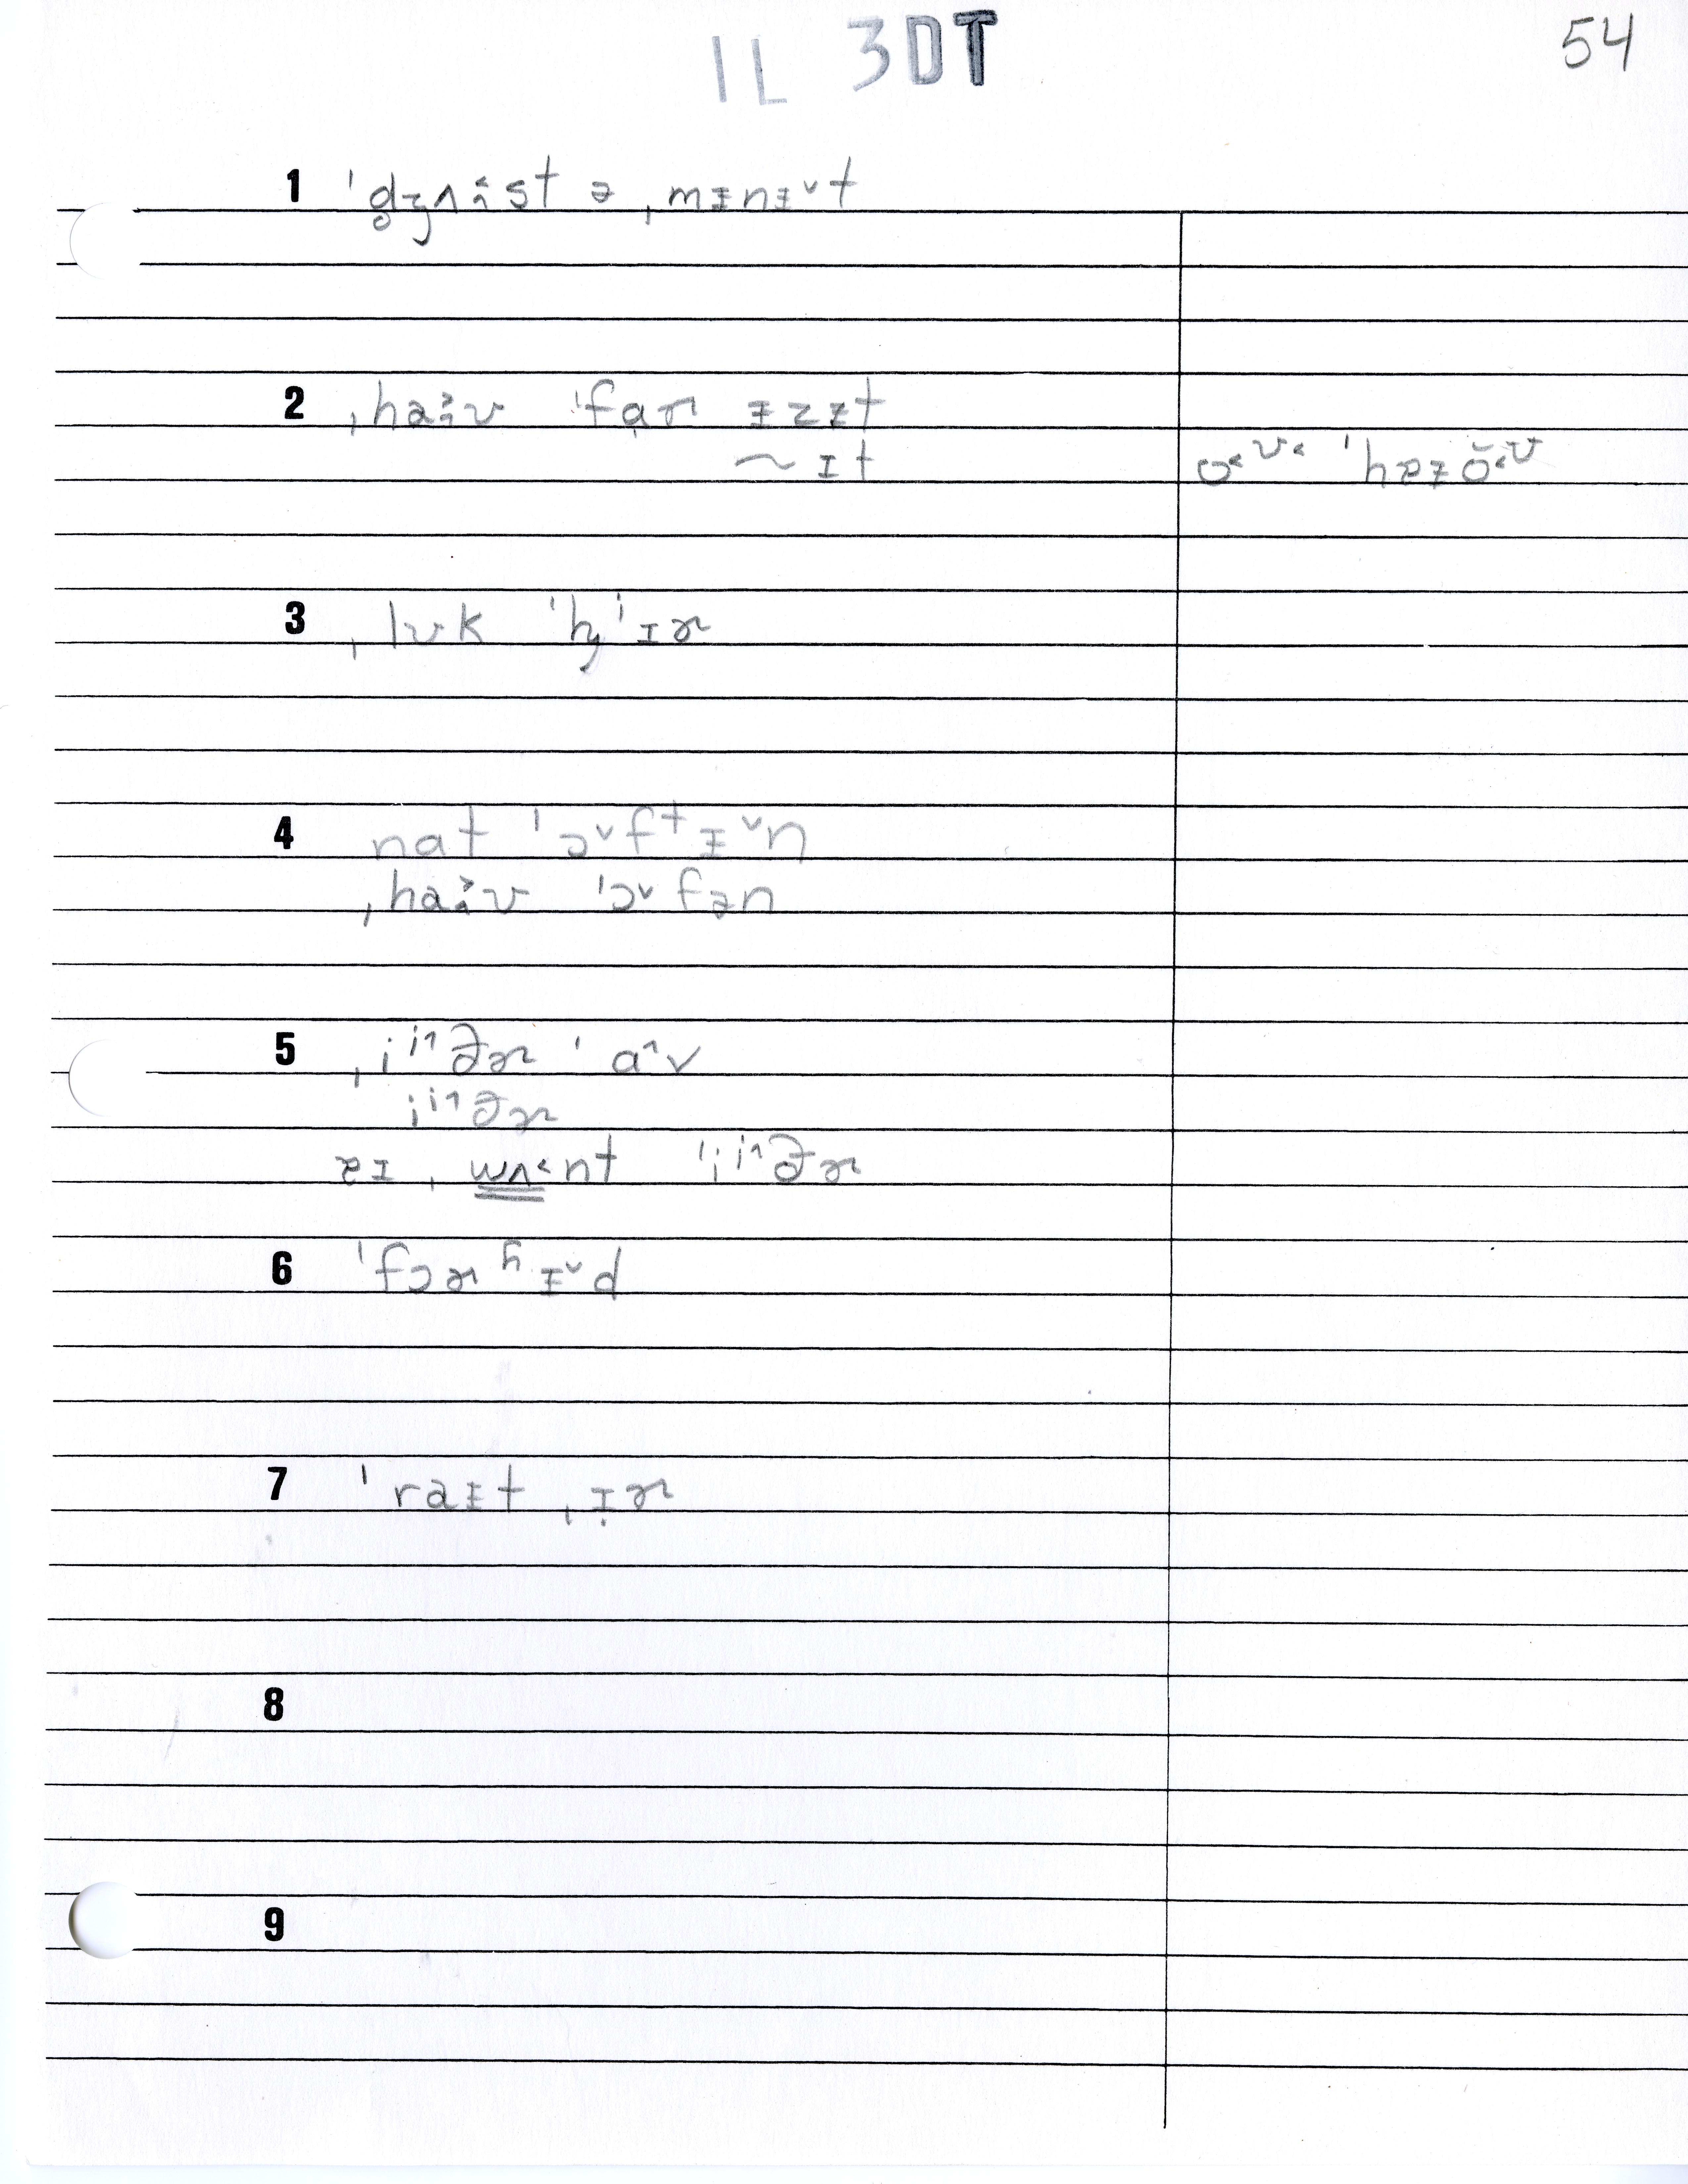 1L 3DT
54
1 ˈdʒʌ˂ːst ə ˌmɪnɪ˅t
2 ˌha˃ːʊ ˈfɑɚ ɪzɪt
~ ɪt
o˂ʊ˂ ˈhɐɪõ˂ʊ
3 ˌlʊk ˈhj ˈɪɚ
4 nat ˈɔ˅ftɪ˅n
ˌha˃ːʊ ˈɔ˅fən
5 ˌii˄ðɚ ˈɑ˄v
ii˄ðɚ
ɐɪ ˌwʌ˂nt ˈii˄ðɚ
6 ˈfɔɚɦɪ˅d
7 ˈraɪt ˌɪɚ
8
9